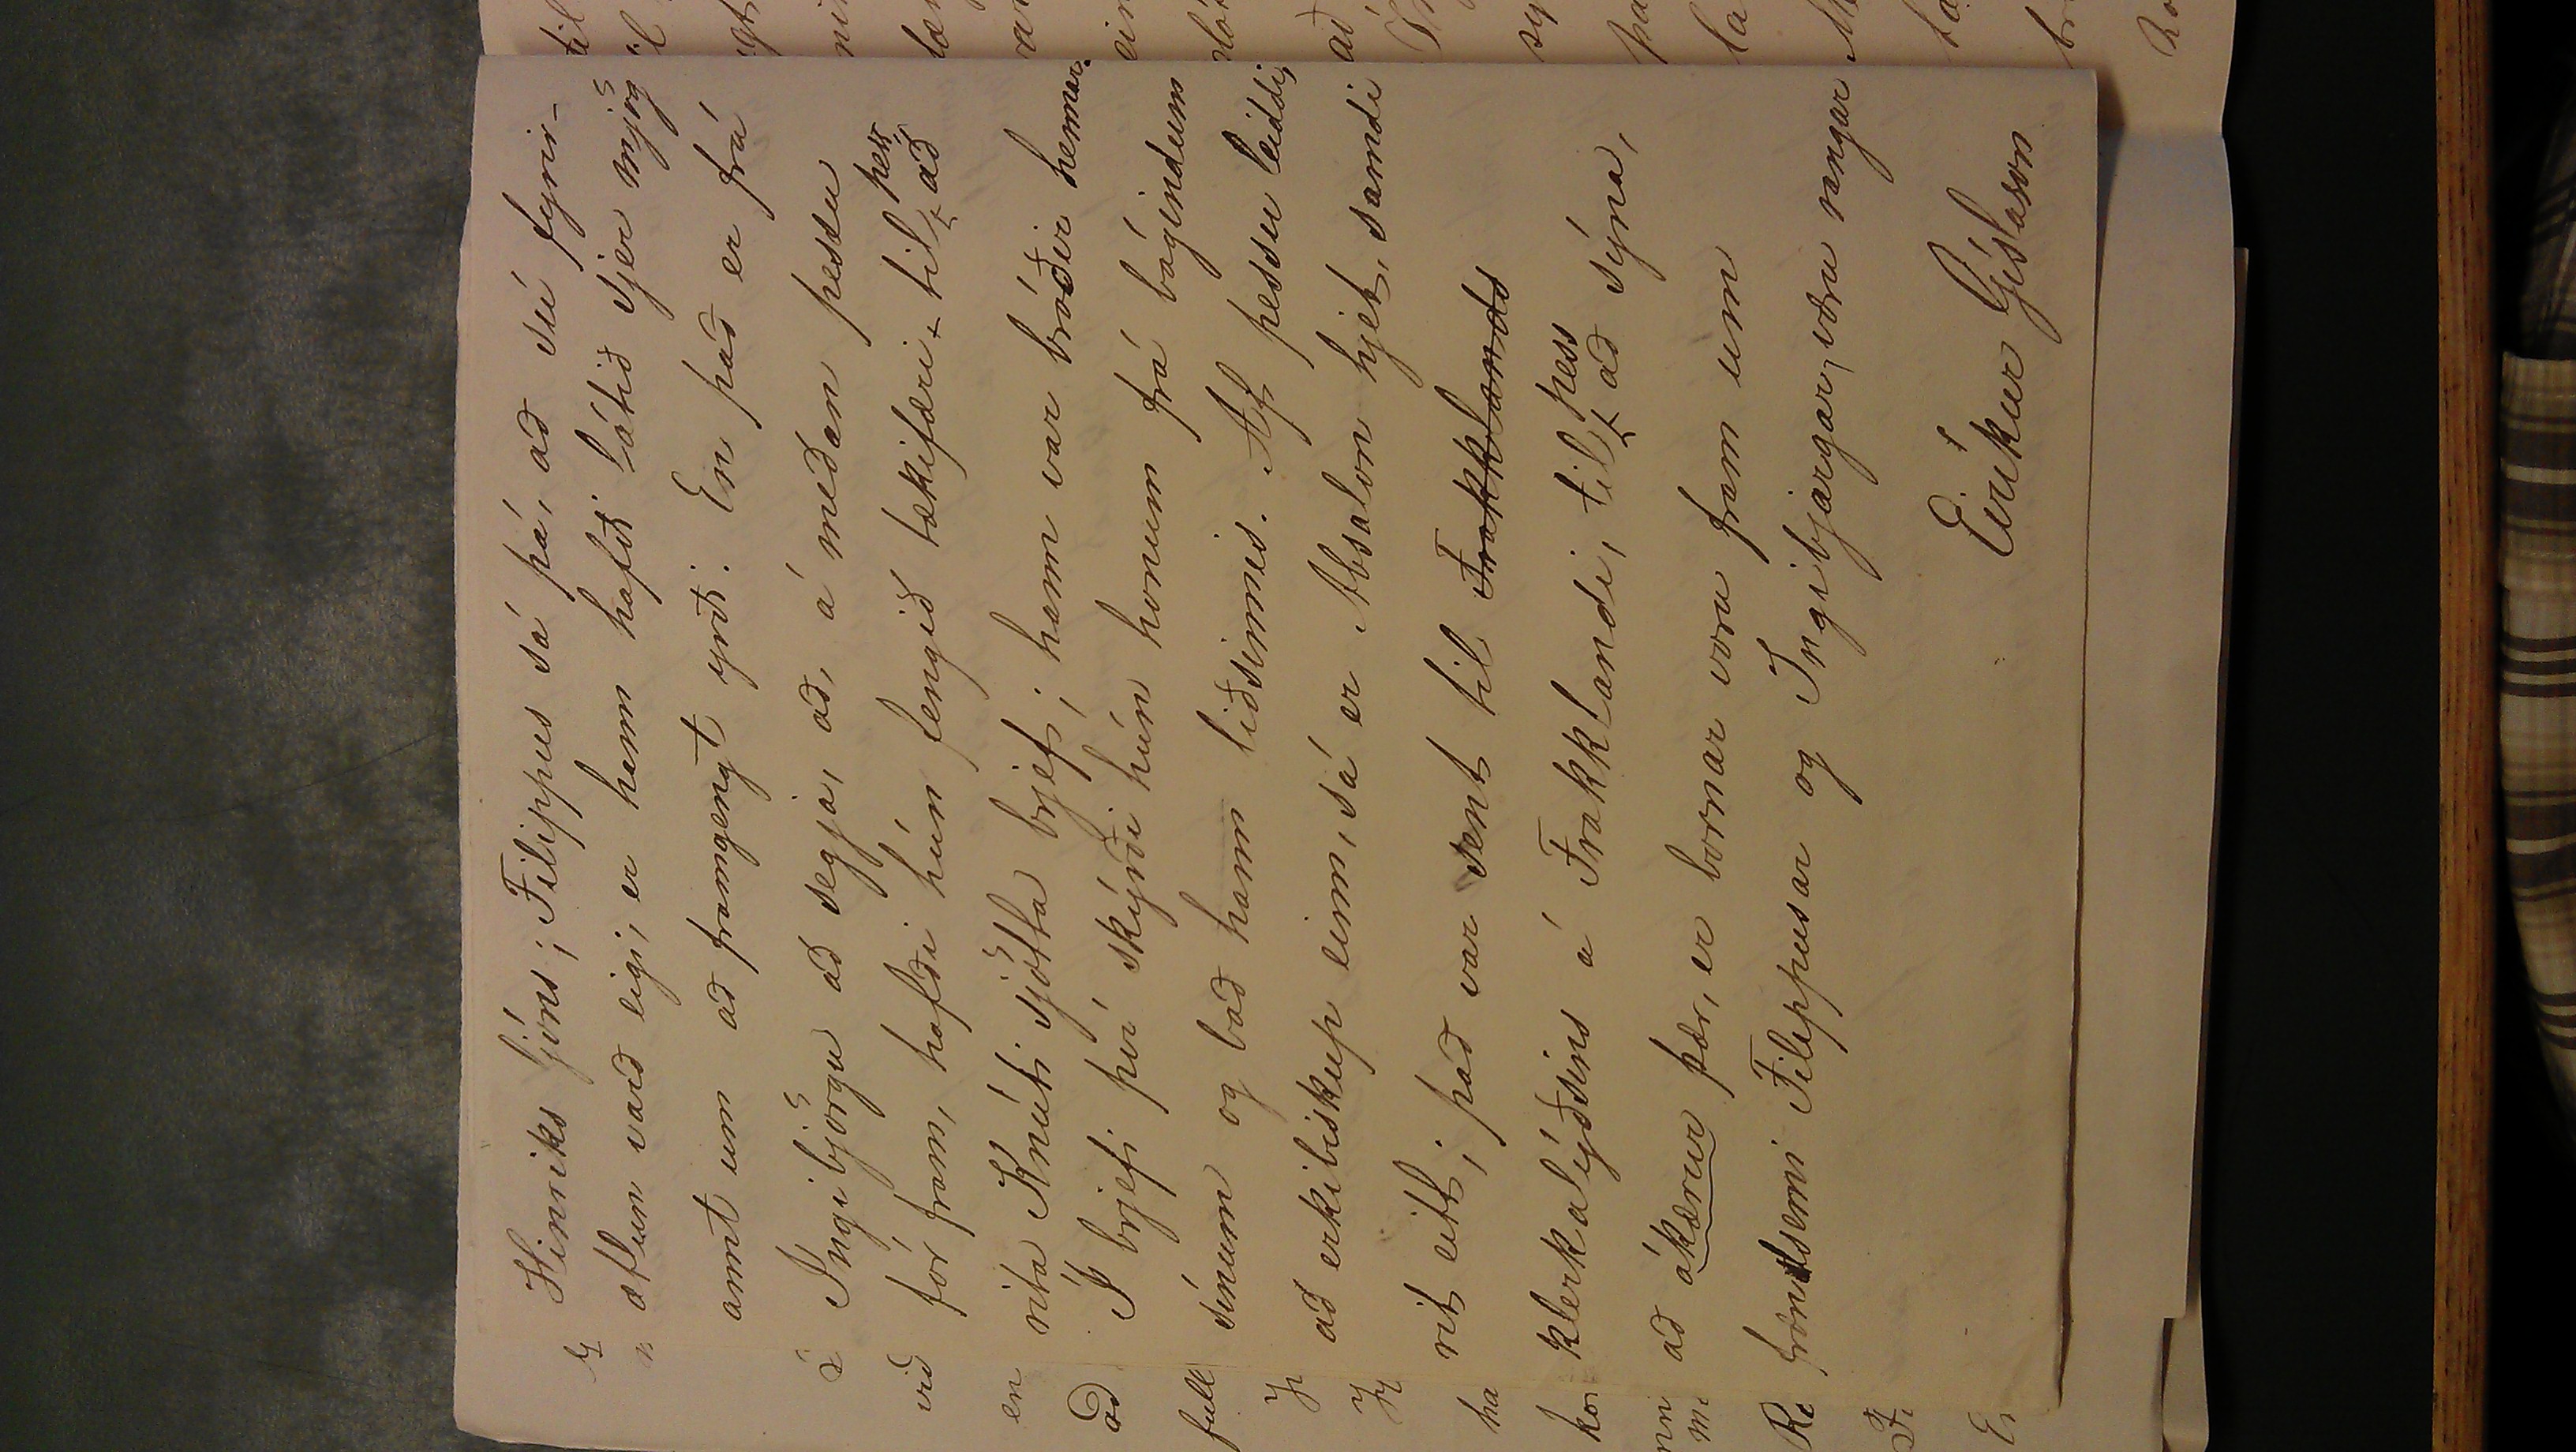 Hinriks ljóns; Filippus sá þá, að sú fyrir-
ætlun varð eigi, er hann hafði látið sjer mjög
annt um að framgengt yrði. En það er frá
Ingibjörgu að segja, að, á meðan þessu
fór fram, hafði hún fengið tækifæri til þess að
rita Knúti sjötta brjef; hann var bróðir hennar.
Í brjefi því skýrði hún honum frá bágindum
sínum og bað hann liðsinnis. Af þessu leiddi,
að erkibiskup einn, sá er Absalon hjet, samdi
rit eitt; það var sent til Frakklands
klerkalýðsins á Frakklandi, til þess að sýna,
að ákærur þær, er bornar voru fram um
frændsemi Filippusar og Ingibjargar, voru rangar
Eiríkur Gíslason